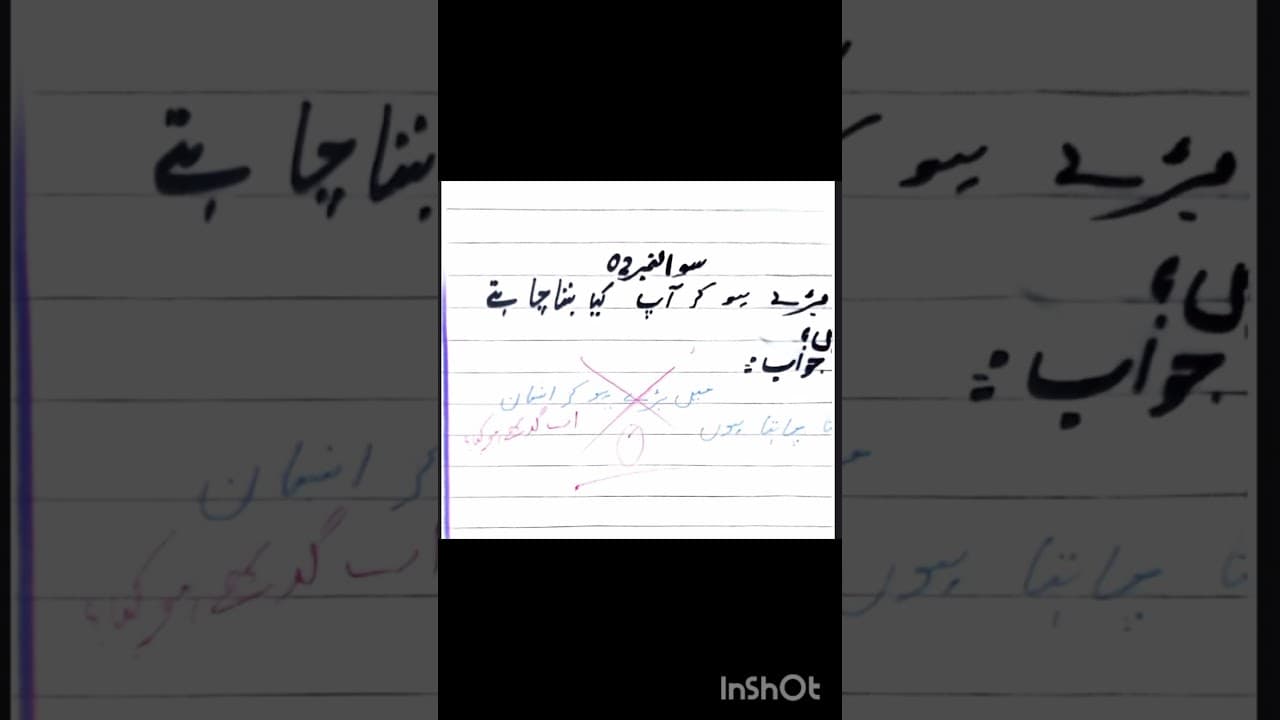 سوال نمبر 02
بڑے ہو کر آپ کیا بننا چاہتے
ہیں؟
جواب:
میں بڑے ہو کر انسان
نا چاہتا ہوں
اب گدھے ہو کیا؟
0
InShOt